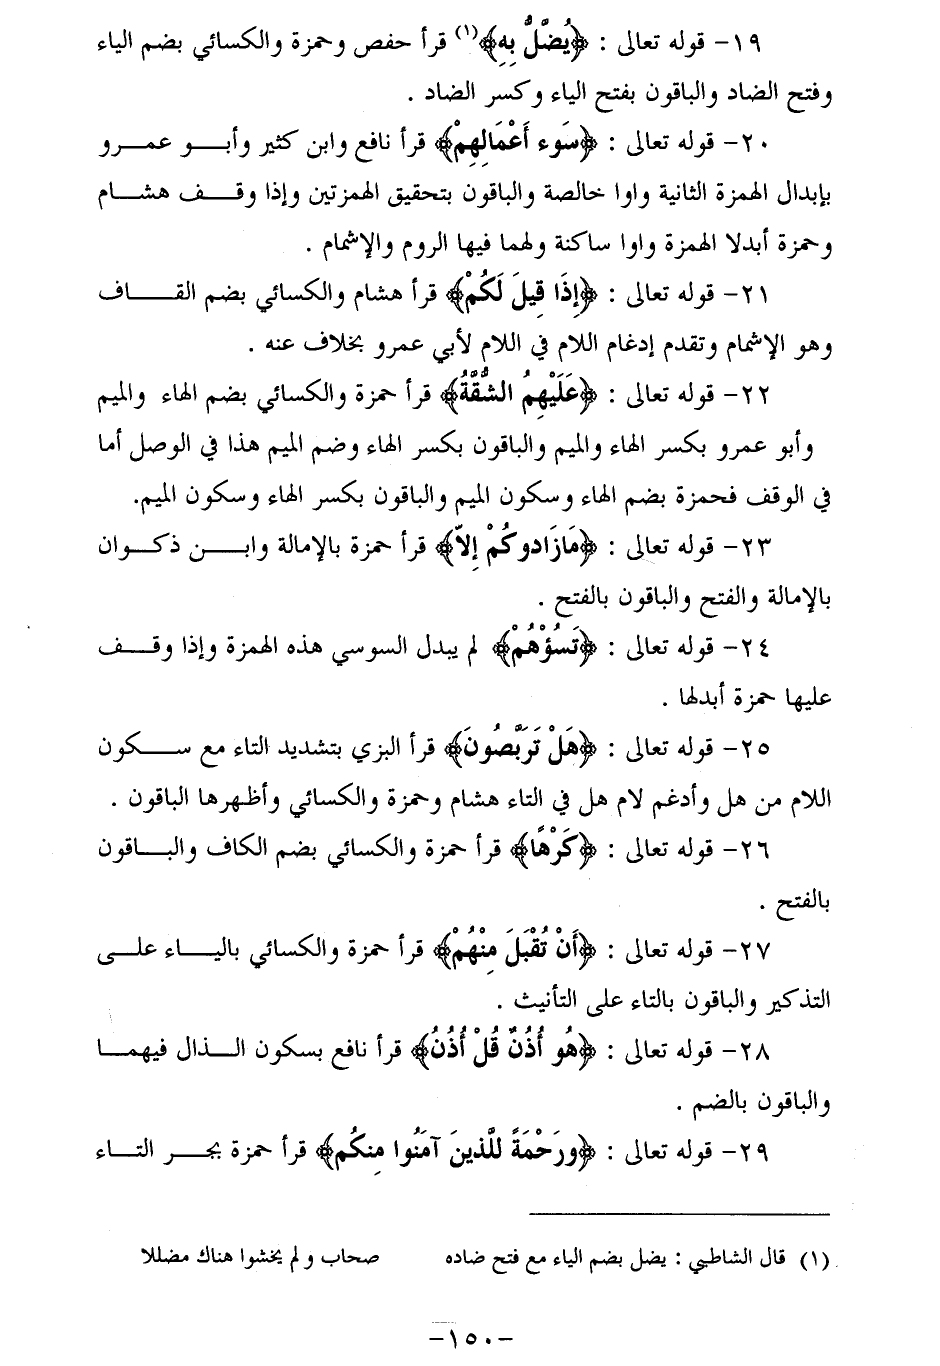 ١٩- قوله تعالى : ﴿يُضَلُّ بِهِ﴾(١) قرأ حفص وحمزة والكسائي بضم الياء
وفتح الضاد والباقون بفتح الياء وكسر الضاد .
٢٠- قوله تعالى : ﴿سَوء أَعْمَالِهِمْ﴾ قرأ نافع وابن كثير وأبو عمرو
بإبدال الهمزة الثانية واوا خالصة والباقون بتحقيق الهمزتين وإذا وقف هشام
وحمزة أبدلا الهمزة واوا ساكنة ولهما فيها الروم والإشمام .
٢١- قوله تعالى : ﴿إِذَا قِيلَ لَكُمْ﴾ قرأ هشام والكسائي بضم القاف
وهو الإشمام وتقدم إدغام اللام في اللام لأبي عمرو بخلاف عنه .
٢٢- قوله تعالى : ﴿عَلَيْهِمُ الشُّقَّةُ﴾ قرأ حمزة والكسائي بضم الهاء والميم
وأبو عمرو بكسر الهاء والميم والباقون بكسر الهاء وضم الميم هذا في الوصل أما
في الوقف فحمزة بضم الهاء وسكون الميم والباقون بكسر الهاء وسكون الميم.
٢٣- قوله تعالى : ﴿مَازَادوكُمْ إلاّ﴾ قرأ حمزة بالإمالة وابن ذكوان
بالإمالة والفتح والباقون بالفتح .
٢٤- قوله تعالى : ﴿تَسُؤْهُمْ﴾ لم يبدل السوسي هذه الهمزة وإذا وقف
عليها حمزة أبدلها .
٢٥- قوله تعالى : ﴿هَلْ تَرَبَّصُونَ﴾ قرأ البزي بتشديد التاء مع سكون
اللام من هل وأدغم لام هل في التاء هشام وحمزة والكسائي وأظهرها الباقون .
٢٦- قوله تعالى : ﴿كَرْهًا﴾ قرأ حمزة والكسائي بضم الكاف والباقون
بالفتح .
٢٧- قوله تعالى : ﴿أَنْ تُقْبَلَ مِنْهُمْ﴾ قرأ حمزة والكسائي بالياء على
التذكير والباقون بالتاء على التأنيث .
٢٨- قوله تعالى : ﴿هُو أُذُنٌ قُلْ أُذُنُ﴾ قرأ نافع بسكون الذال فيهما
والباقون بالضم .
٢٩- قوله تعالى : ﴿ورَحْمَةً للَّذينَ آمَنُوا مِنكُم﴾ قرأ حمزة بجر التاء
(١) قال الشاطبي : يضل بضم الياء مع فتح ضاده صحاب ولم يخشوا هناك مضللا
-١٥٠-